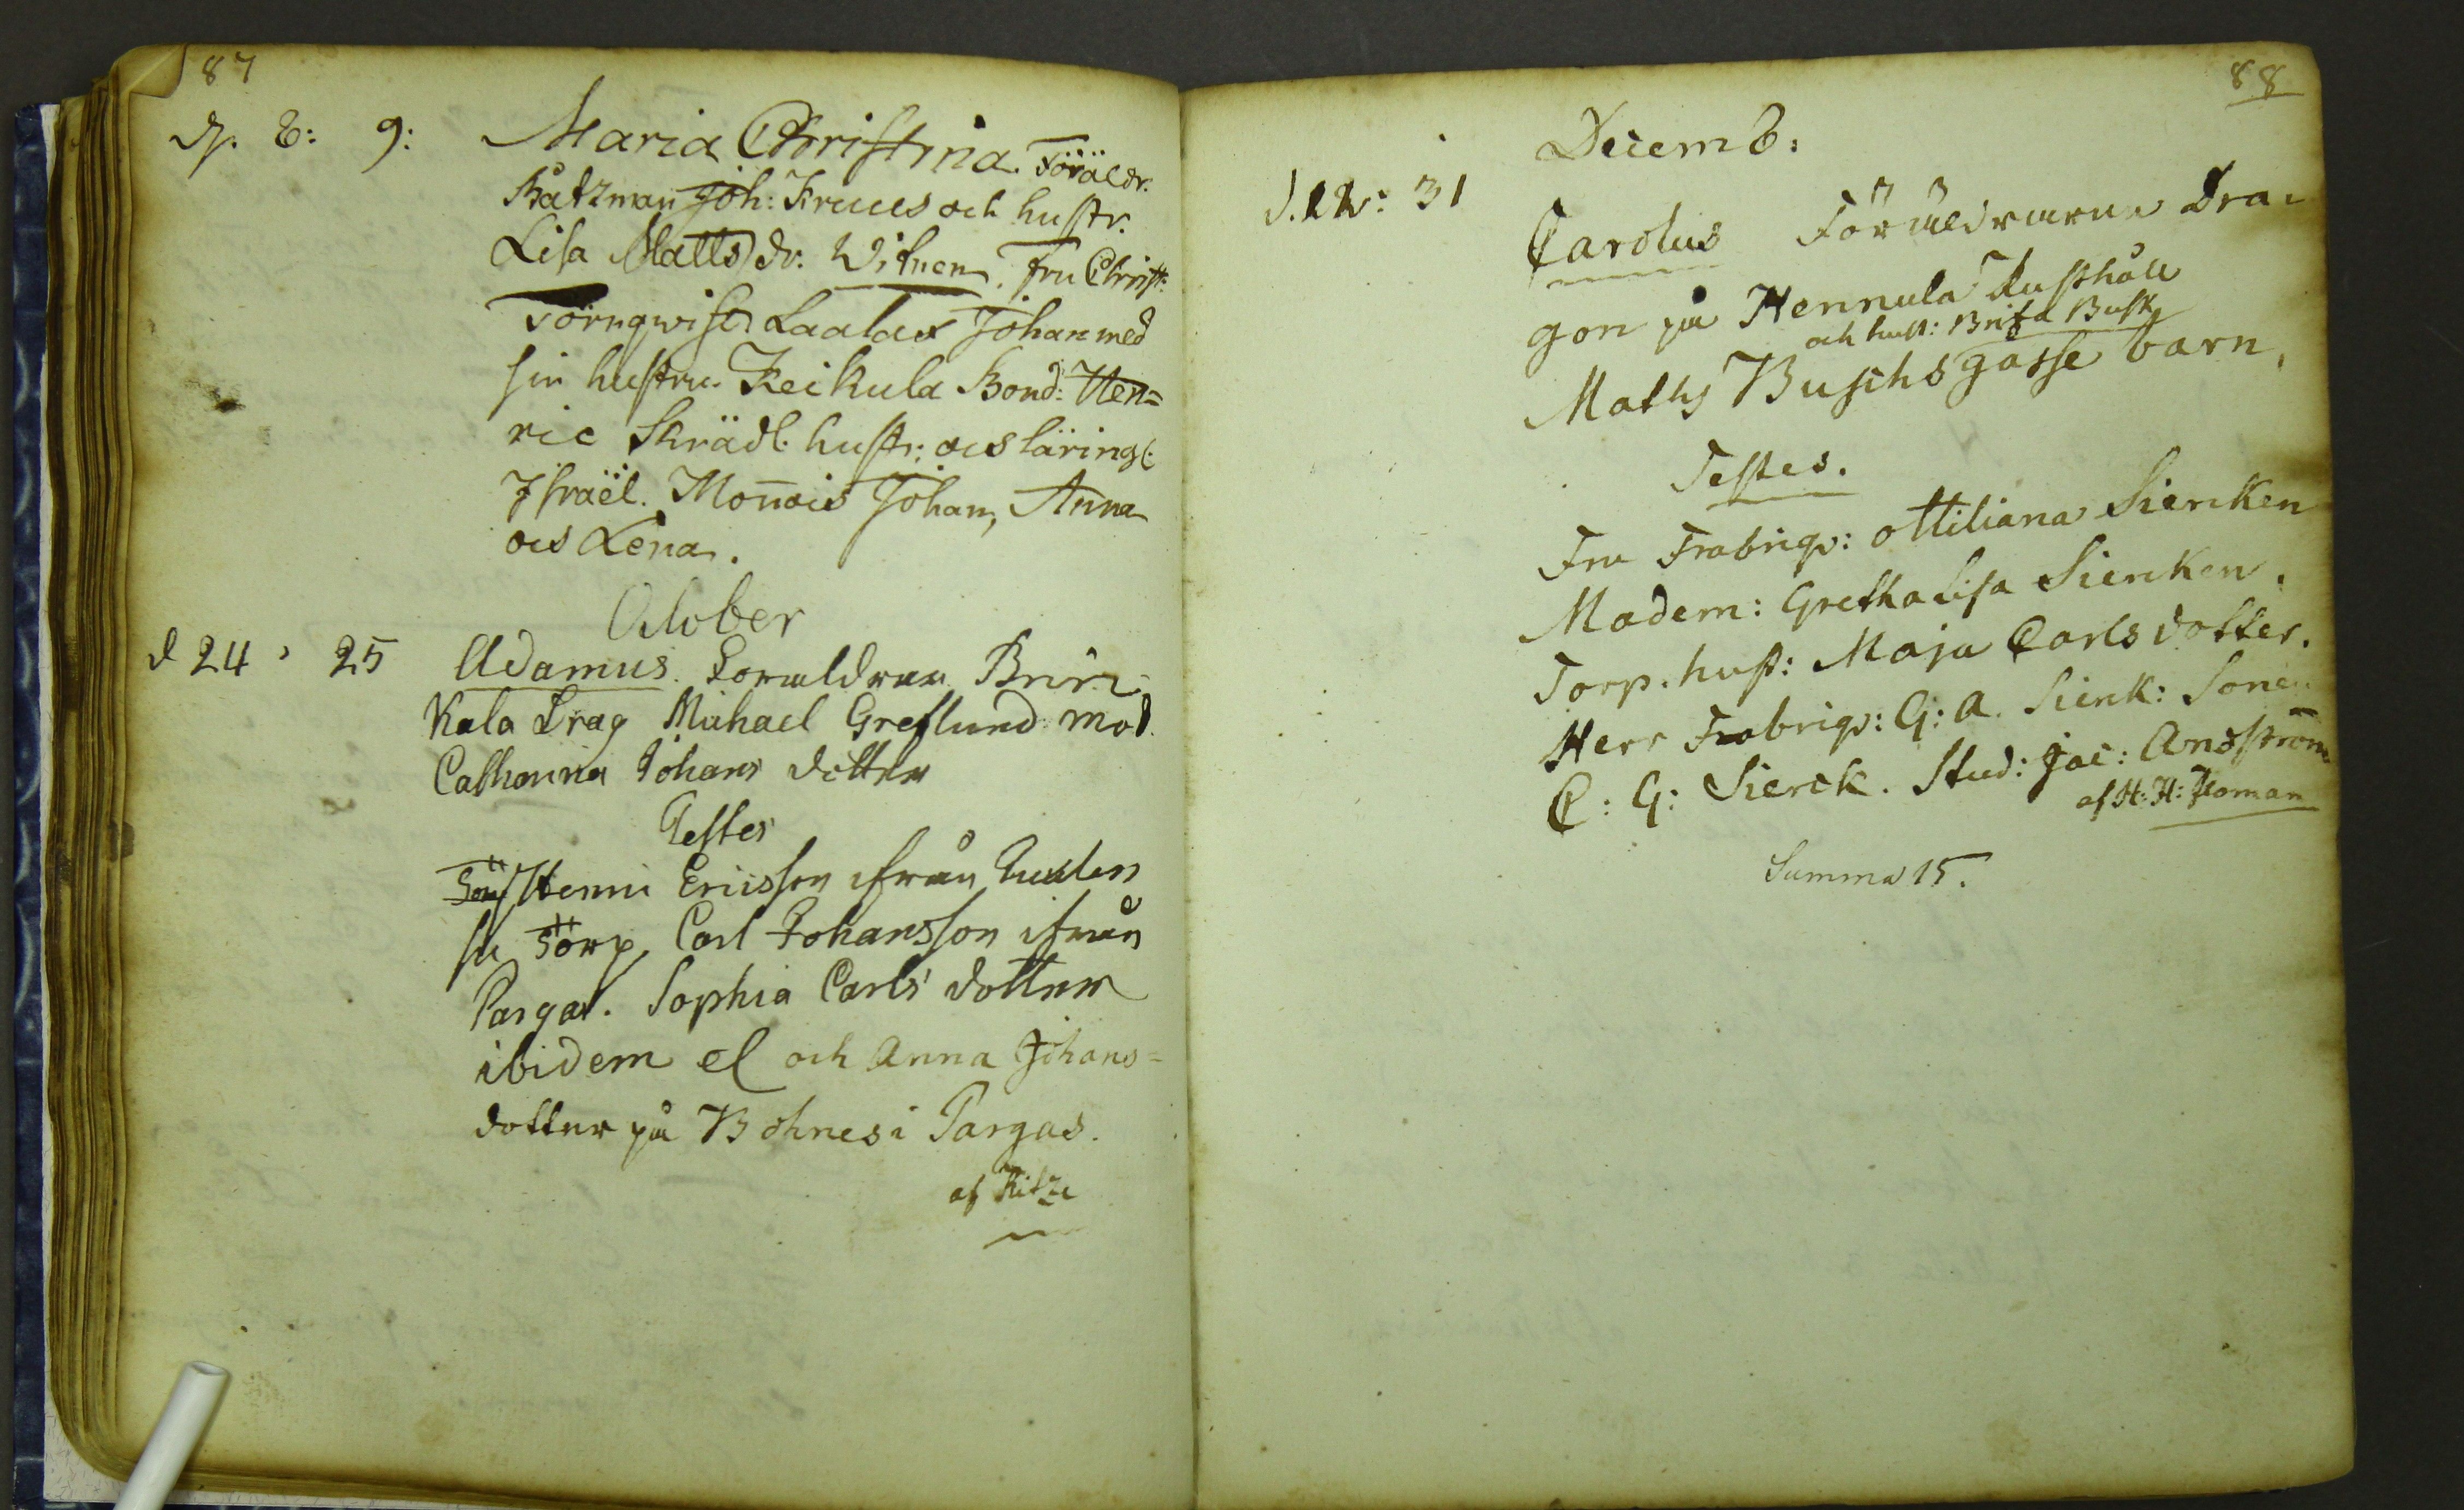 87
d. 8: 9: Maria Christina. Föräldr.
Båtzman Joh: Kruus och hustr.
Lisa Matts dr. Witnen. Fru Christ:
Törnqwist Laalax Johan med
sin hustru. Keikula Bond: Hen=
ric Skrädl. hustr: och läringl:
Israël. Monois Johan, Anna
och Lena.
October
d 24. 25 Adamus. Föräldrar
kala Drag Michael Greflund mod.
Catharina Johans dotter
Testes
Henric Ericsson ifrån
Torp, Carl Johansson ifrån
Pargas. Sophia Carls dotter
ibidem och Anna Johans=
dotter på Böhnes i Pargas.
af Ritz
88
Decemb:
31
Carolus Föräldrarne Dra-
gon på Hennula Rusthåll
och hust: Brita Busk
Maths Buschs gosse barn.
Testes.
Fru Frabriqv: Ottiliana Siercken
Madem: Gretha Lisa Siercken.
Torp. hust: Maja Carls dotter.
Herr Frabriqv: G: A. Sierck: Sonen
C: G: Sierck. Stud: Jac: Andström
af H: H: Homan
Summa 15.